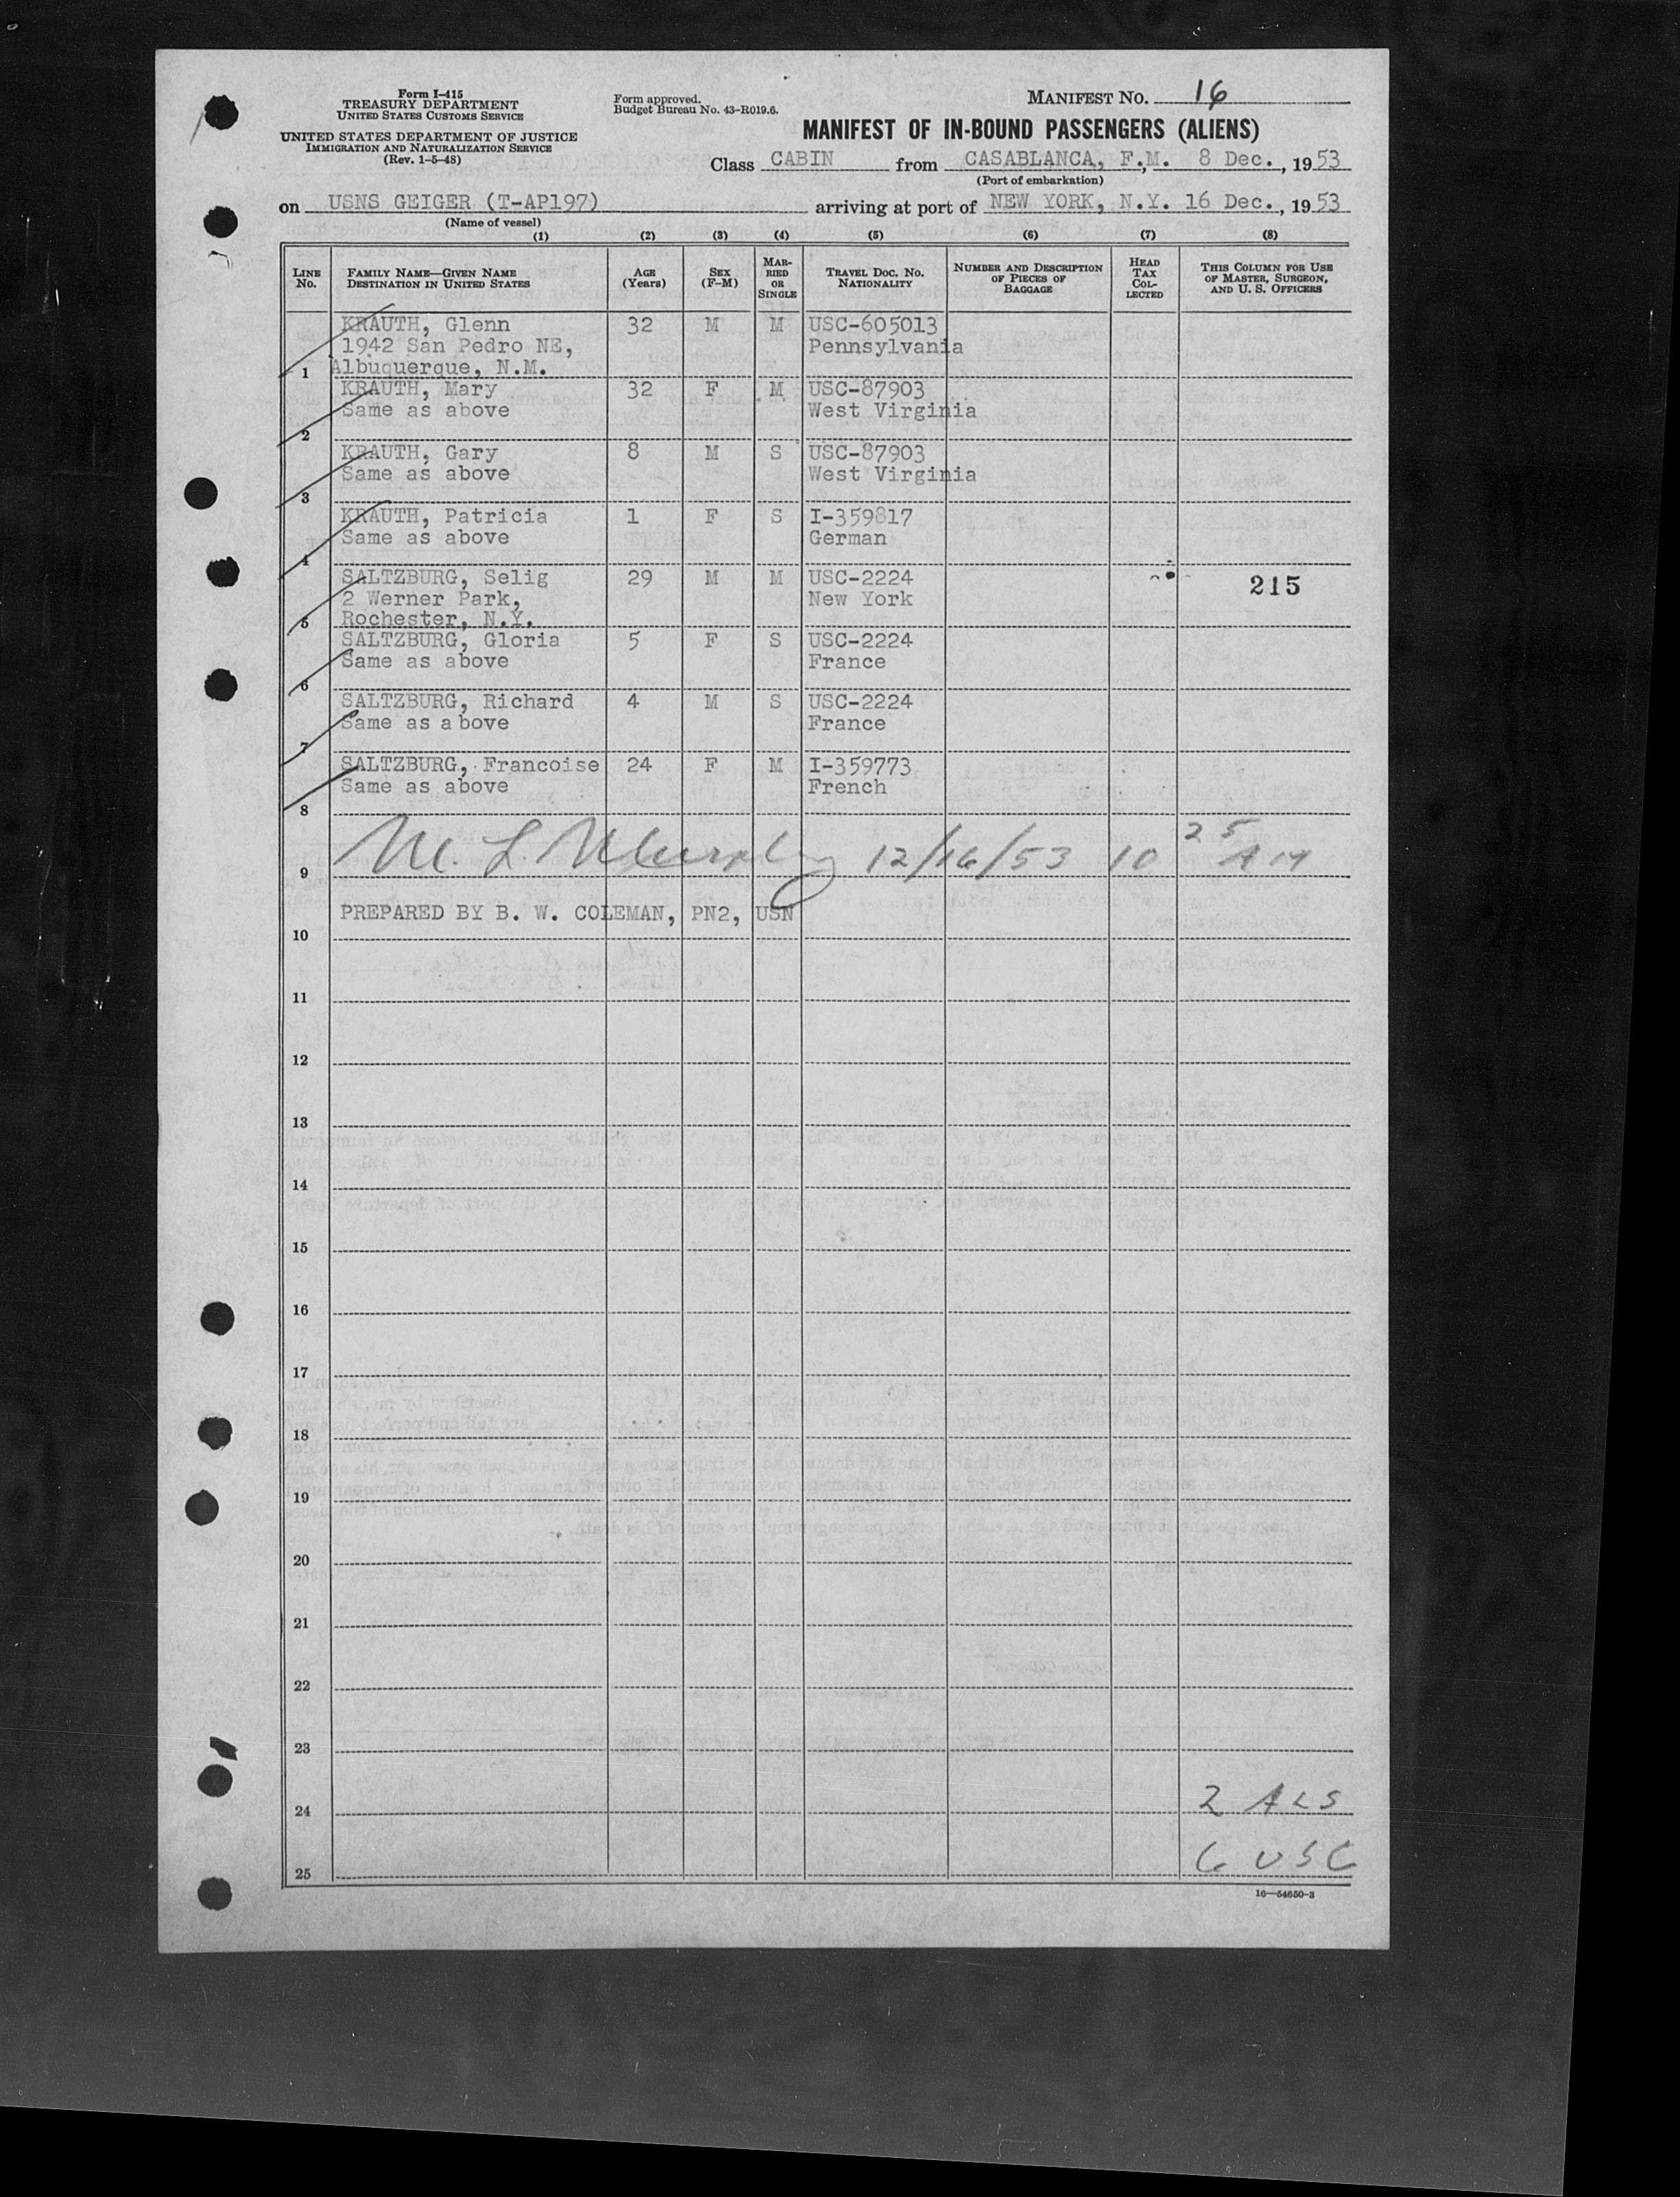 Form I-415
TREASURY DEPARTMENT
UNITED STATES CUSTOMS SERVICE
UNITED STATES DEPARTMENT OF JUSTICE
IMMIGRATION AND NATURALIZATION SERVICE
(Rev. 1-5-48)
Form approved.
Budget Bureau No. 43-R019.6.
MANIFEST NO. 16
MANIFEST OF IN-BOUND PASSENGERS (ALIENS)
Class CABIN from CASABLANCA, F.M. 8 Dec., 1953
(Port of embarkation)
on USNS GEIGER (T-AP197) arriving at port of NEW YORK, N.Y. 16 Dec., 1953
(Name of vessel)
(1) (2) (3) (4) (5) (6) (7) (8)
LINE No. FAMILY NAME—GIVEN NAME DESTINATION IN UNITED STATES AGE (Years) SEX (F-M) MARRIED OR SINGLE TRAVEL DOC. NO. NATIONALITY NUMBER AND DESCRIPTION OF PIECES OF BAGGAGE HEAD TAX COLLECTED THIS COLUMN FOR USE OF MASTER, SURGEON, AND U. S. OFFICERS
KRAUTH, Glenn 32 M M USC-605013
1942 San Pedro NE, Pennsylvania
1 Albuquerque, N.M.
KRAUTH, Mary 32 F M USC-87903
Same as above West Virginia
2
KRAUTH, Gary 8 M S USC-87903
Same as above West Virginia
3
KRAUTH, Patricia 1 F S I-359817
Same as above German
4
SALTZBURG, Selig 29 M M USC-2224 215
2 Werner Park, New York
5 Rochester, N.Y.
SALTZBURG, Gloria 5 F S USC-2224
Same as above France
6
SALTZBURG, Richard 4 M S USC-2224
Same as above France
7
SALTZBURG, Francoise 24 F M I-359773
Same as above French
8
9 M. L. Murphy 12/16/53 10 25 AM
PREPARED BY B. W. COLEMAN, PN2, USN
10
11
12
13
14
15
16
17
18
19
20
21
22
23
24 2 ALS
25 6 USC
16—54650-3